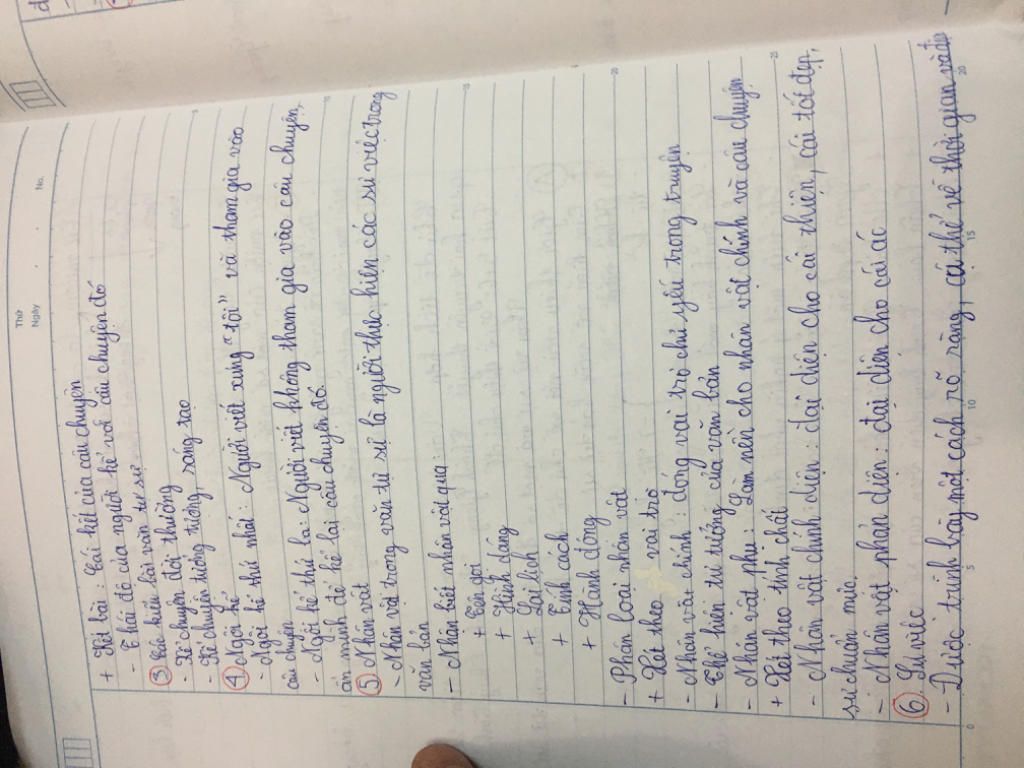 Thứ
Ngày . . No.
+ Kết bài : Cái kết của câu chuyện
- Thái độ của người kể với câu chuyện đó
③ Các kiểu bài văn tự sự
- Kể chuyện đời thường
- Kể chuyện tưởng tượng, sáng tạo
④ Ngôi kể
- Ngôi kể thứ nhất : Người viết xưng "tôi" và tham gia vào
câu chuyện
- Ngôi kể thứ ba : Người viết không tham gia vào câu chuyện,
ẩn mình để kể lại câu chuyện đó.
⑤ Nhân vật
- Nhân vật trong văn tự sự là người thực hiện các sự việc trong
văn bản
- Nhận biết nhân vật qua :
+ Tên gọi
+ Hình dáng
+ Lai lịch
+ Tính cách
+ Hành động
- Phân loại nhân vật
+ Xét theo vai trò
- Nhân vật chính : đóng vai trò chủ yếu trong truyện
- Thể hiện tư tưởng của văn bản
- Nhân vật phụ : Làm nền cho nhân vật chính và câu chuyện
+ Xét theo tính chất
- Nhân vật chính diện : đại diện cho cái thiện, cái tốt đẹp,
sự chuẩn mực.
- Nhân vật phản diện : đại diện cho cái ác
⑥. Sự việc
- Được trình bày một cách rõ ràng, cụ thể về thời gian và địa
0 5 10 15 20
5
10
15
20
25